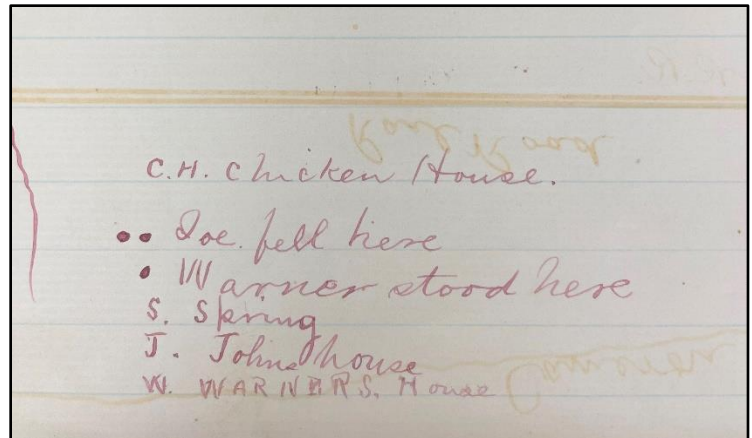 Rail Road
C.H. Chicken House.
•• Joe. fell here
• Warner stood here
S. Spring
J. Johns house
W. WARNERS. House